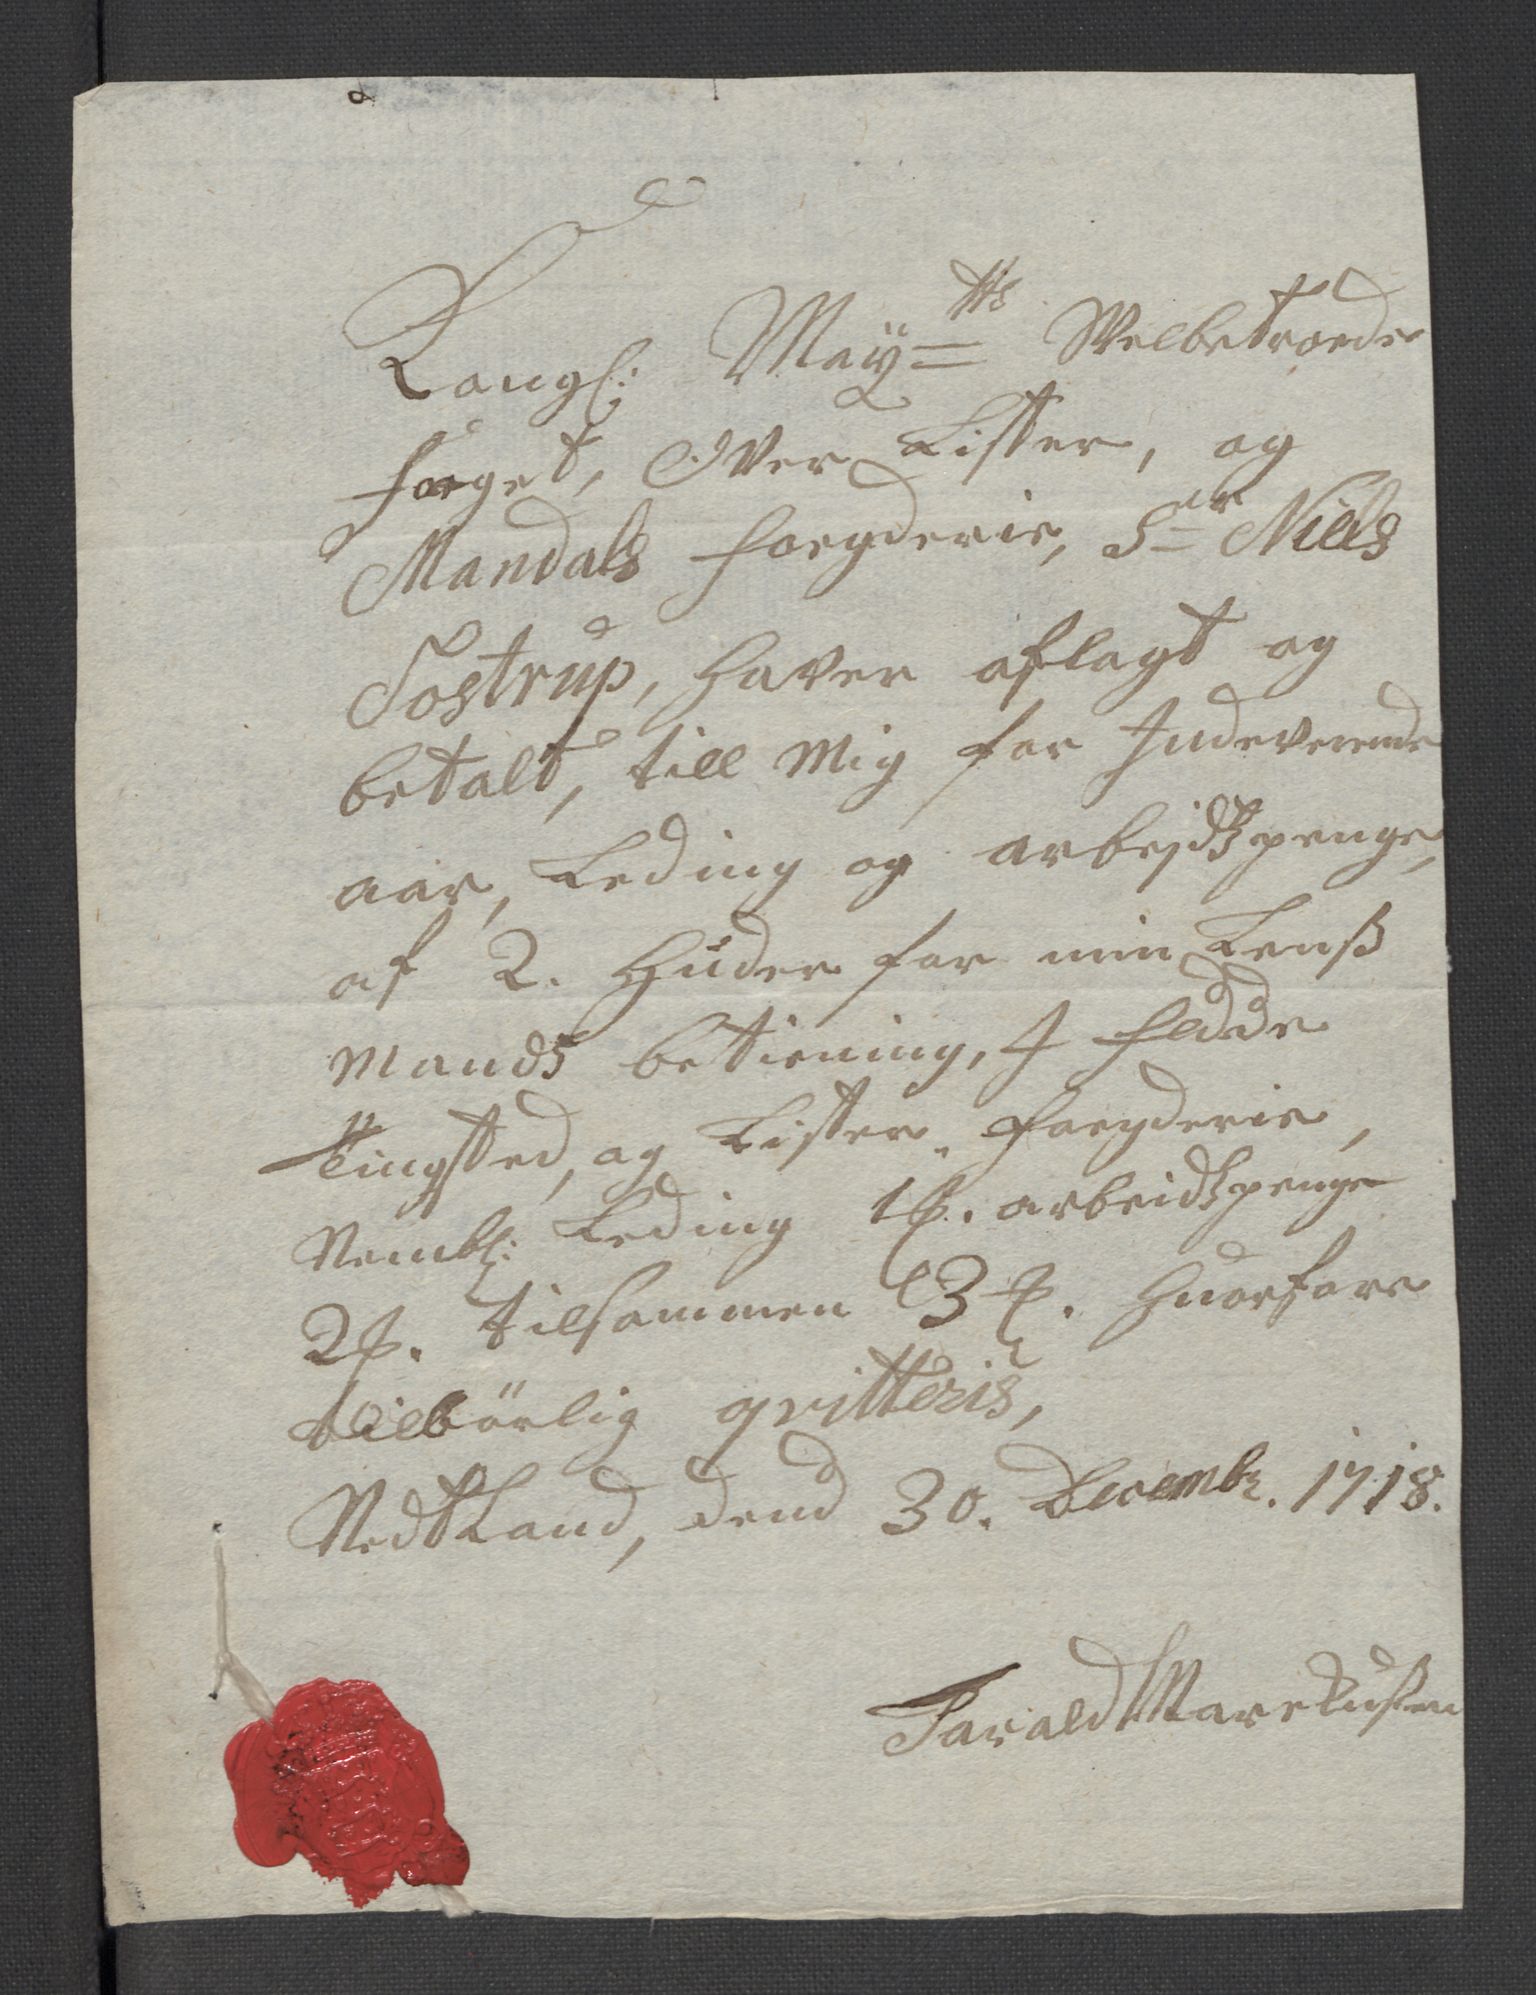 Kongl: May=tts Welbetroede
foeget, Over Lister, og
Mandals foegderie, Sr Niels
Tostrup, haver aflagt og
betalt, till Mig for Indeverende
aar, Leding og arbejdtzpenge,
af 2. Huder for min Lenß
Mandz betiening, I fedde
Tingsted, og Lister foegderie,
Nembl: Leding 1 arbeidtzpenge
2 tilsammen 3 huorfore
tilbörlig qvitteris,
Nedtland, dend 30. Decembr. 1718.
Tarald Markussen